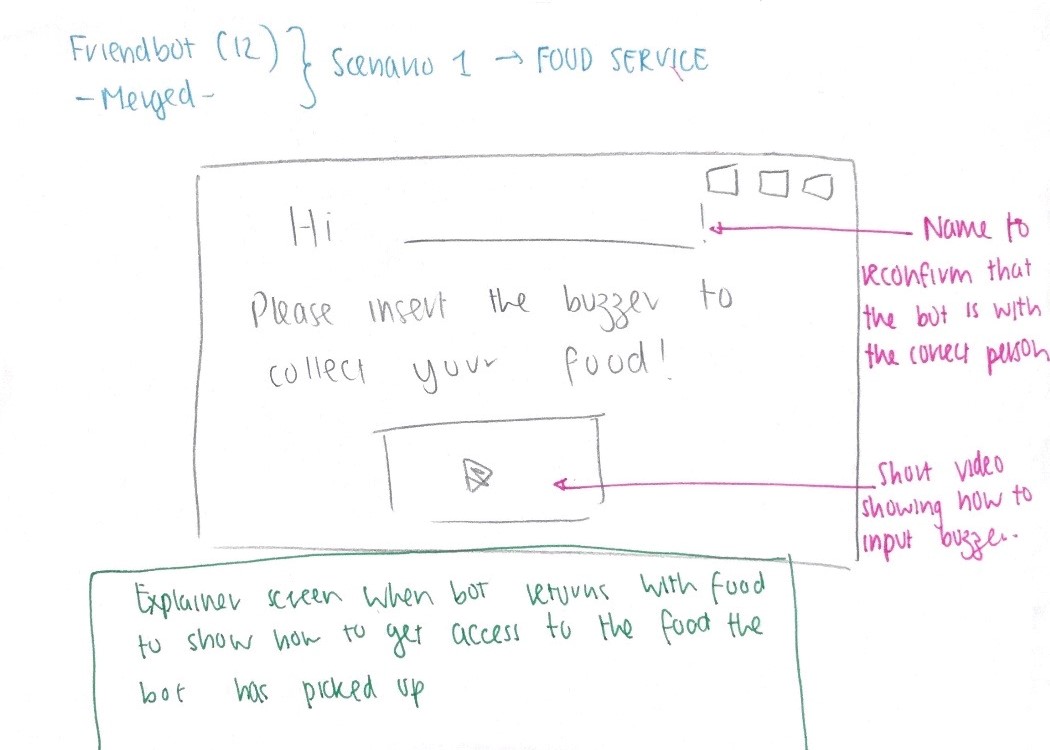 Friendbot (12) } Scenario 1 → FOOD SERVICE
-Merged-
Hi ____________ !
Please insert the buzzer to
collect your food!
Name to
reconfirm that
the bot is with
the correct person
Short video
showing how to
input buzzer.
Explainer screen when bot returns with food
to show how to get access to the food the
bot has picked up